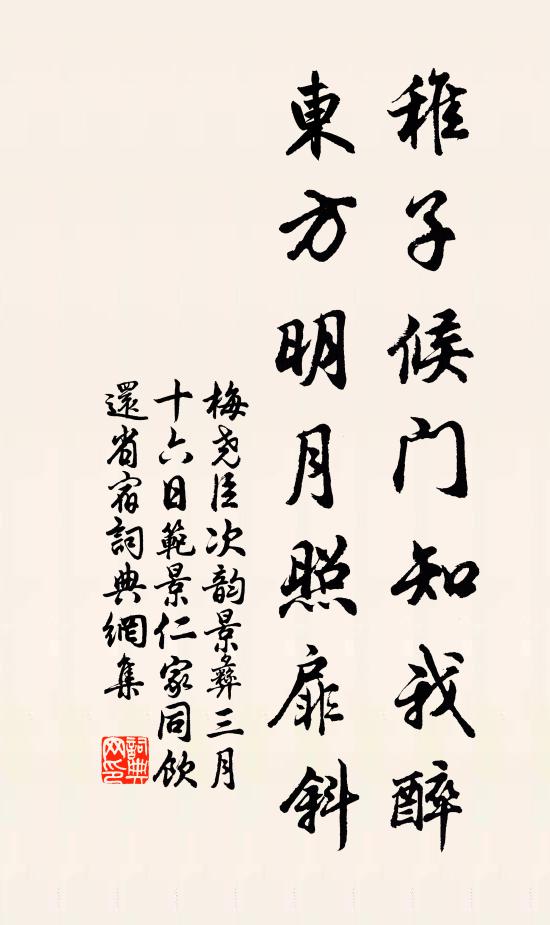 稚子候门知我醉
東方明月照扉斜
梅尧臣次韵景彝三月
十六日範景仁家同飲
還省宿詞典網集
詞典
网印